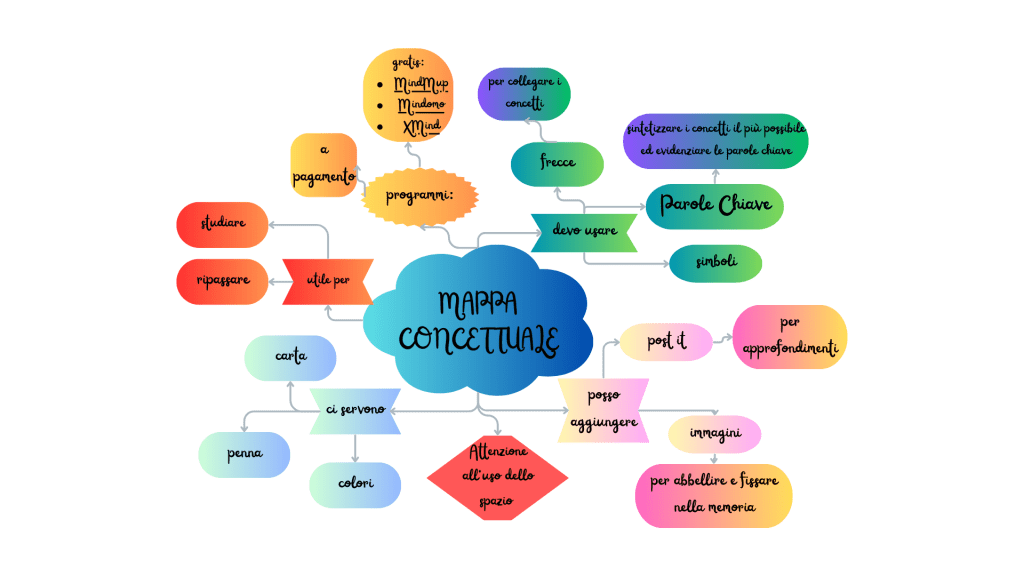 gratis:
• MindMup
• Mindomo
• XMind
a
pagamento
programmi:
per collegare i
concetti
frecce
sintetizzare i concetti il più possibile
ed evidenziare le parole chiave
Parole Chiave
devo usare
simboli
studiare
ripassare
utile per
MAPPA
CONCETTUALE
carta
ci servono
penna
colori
Attenzione
all'uso dello
spazio
posso
aggiungere
post it
per
approfondimenti
immagini
per abbellire e fissare
nella memoria